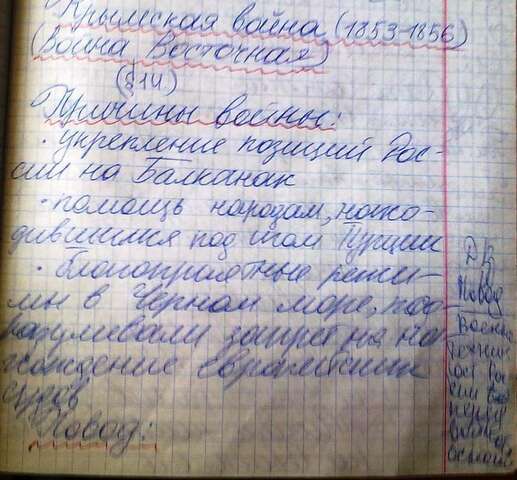 Крымская война (1853-1856)
(Война Восточная)
(§14)
Причины войны:
· укрепление позиций Рос-
сии на Балканах
· помощь народам, нахо-
дившимся под игом Турции
· благоприятные режи-
мы в Черном море, под
разумевали запрет на на
хождение европейских
судов
Повод:
ДЗ
Повод
Военно
технич